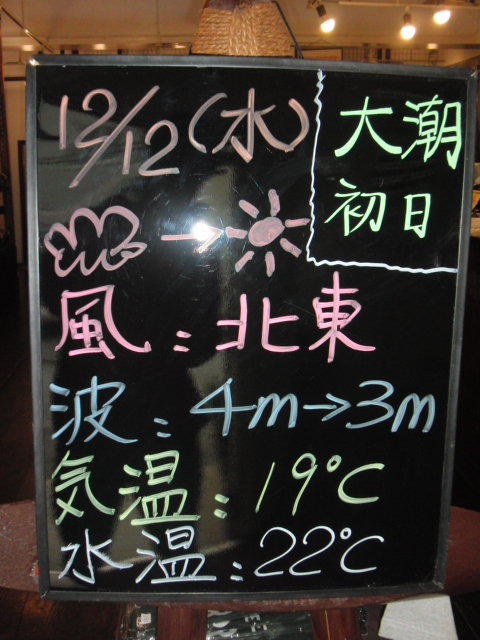 12/12(水)
大潮
初日
→
風:北東
波:4m→3m
気温:19℃
水温:22℃